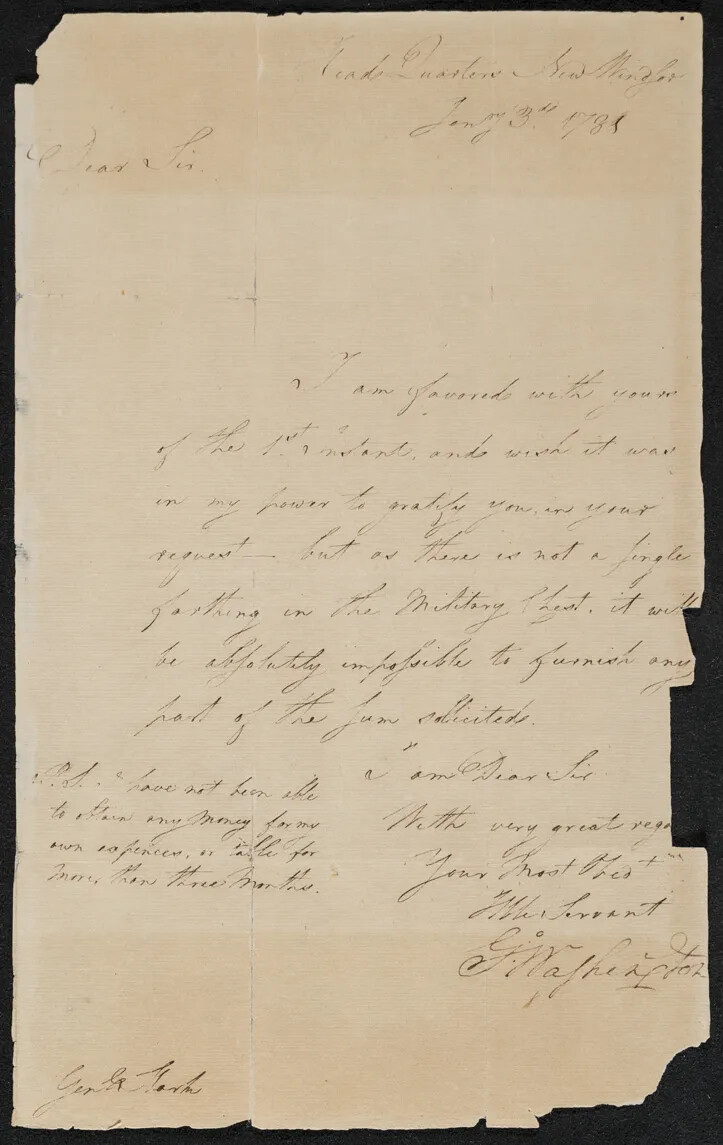 Head Quarters New Windsor
Jany 3d. 1781
Dear Sir.
I am favored with yours
of the 1st. Instant, and wish it was
in my power to gratify you, in your
request — but as there is not a single
farthing in the Military Chest, it will
be absolutely impossible to furnish any
part of the sum solicited.
I am Dear Sir
With very great rega
Your Most Obedt
Hble Servant
Go: Washington
P.S. I have not been able
to obtain any Money for my
own expences, or table for
more, than three Months.
Genl